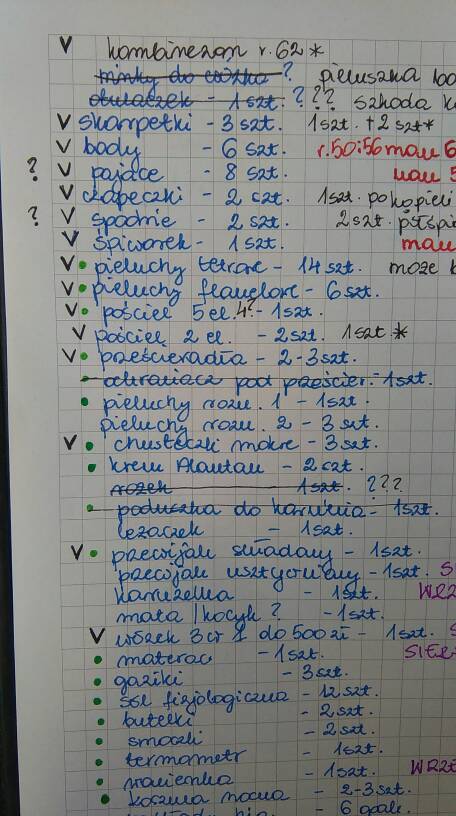 V kombinezon r. 62 *
minky do łóżka ? pieluszka
otulaczek - 1 szt. ? ? ? szkoda
V skarpetki - 3 szt. 1 szt. + 2 szt *
V body - 6 szt. r. 50:56 mam 6
? V pajace - 8 szt. mam 5
V czapeczki - 2 szt. 1 szt. po kopieli
? V spodnie - 2 szt. 2 szt. półśpi
V śpiworek - 1 szt. mam
V • pieluchy tetrowe - 14 szt. może
V • pieluchy flanelowe - 6 szt.
V • pościel 5 el. 4? - 1 szt.
V pościel 2 el. - 2 szt. 1 szt. *
V • prześcieradła - 2-3 szt.
• ochraniacz pod prześcier. - 1 szt.
• pieluchy rozm. 1 - 1 szt.
pieluchy rozm. 2 - 3 szt
V • chusteczki mokre - 3 szt.
• krem Alantan - 2 szt.
rożek 1 szt. ???
• poduszka do karmienia - 1 szt.
leżaczek - 1 szt.
V • przewijak składany - 1 szt.
przewijak usztywniany - 1 szt.
kamizelka - 1 szt. WRZ
mata / kocyk ? - 1 szt.
V wózek 3 w 1 do 500 zł - 1 szt.
• materac - 1 szt. SIER
• gaziki - 3 szt.
• sól fizjologiczna - 12 szt.
• butelki - 2 szt.
• smoczki - 2 szt.
• termometr - 1 szt.
• wanienka - 1 szt. WRZ
• koszula nocna - 2-3 szt.
- 6